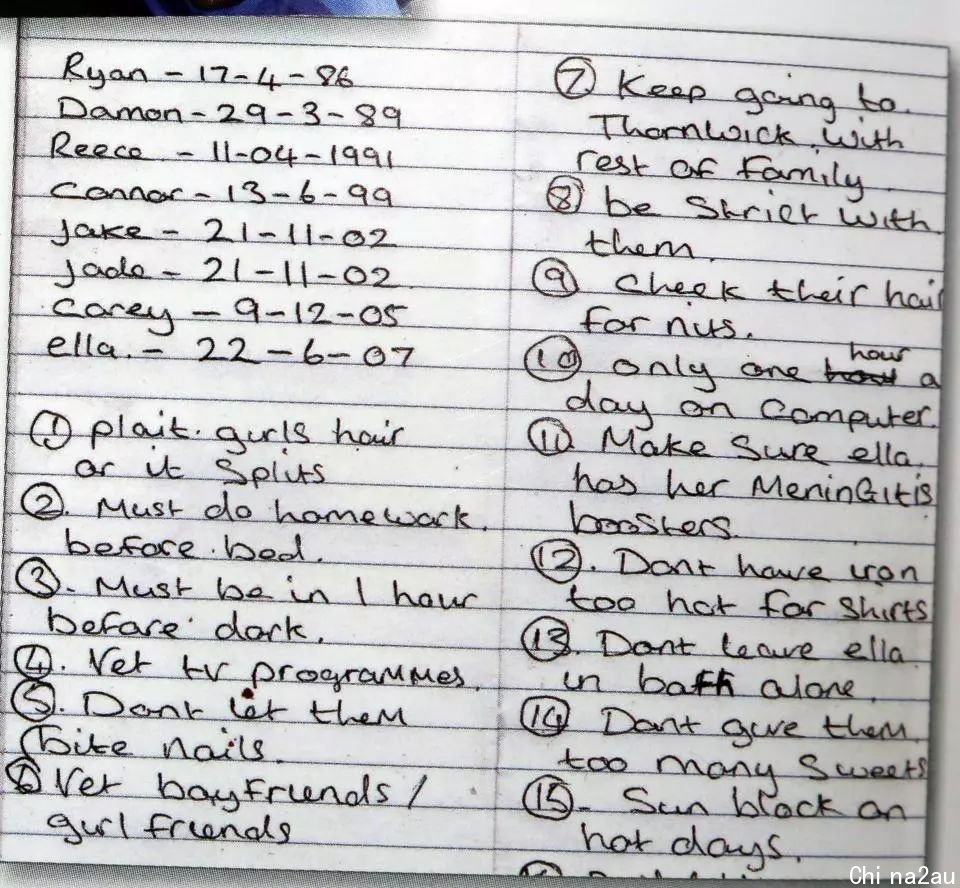 Ryan - 17-4-86
Damon - 29-3-89
Reece - 11-04-1991
Connor - 13-6-99
Jake - 21-11-02
Jade - 21-11-02
Corey - 9-12-05
ella. - 22-6-07
① plait. girls hair
or it Splits
②. Must do homework.
before bed.
③. Must be in 1 hour
before dark.
④. Vet tv programmes.
⑤. Dont let them
bite nails.
⑥ Vet boyfriends /
girl friends
⑦ Keep going to
Thornwick with
rest of family
⑧ be Strict with
them.
⑨ Check their hair
for nits.
⑩ only one hour a
day on Computer.
⑪ Make Sure ella.
has her MeninGitis
boosters.
⑫. Dont have iron
too hot for Shirts
⑬. Dont leave ella
in bath alone.
⑭ Dont give them
too many Sweets
⑮- Sun block on
hot days.
Chi na2au